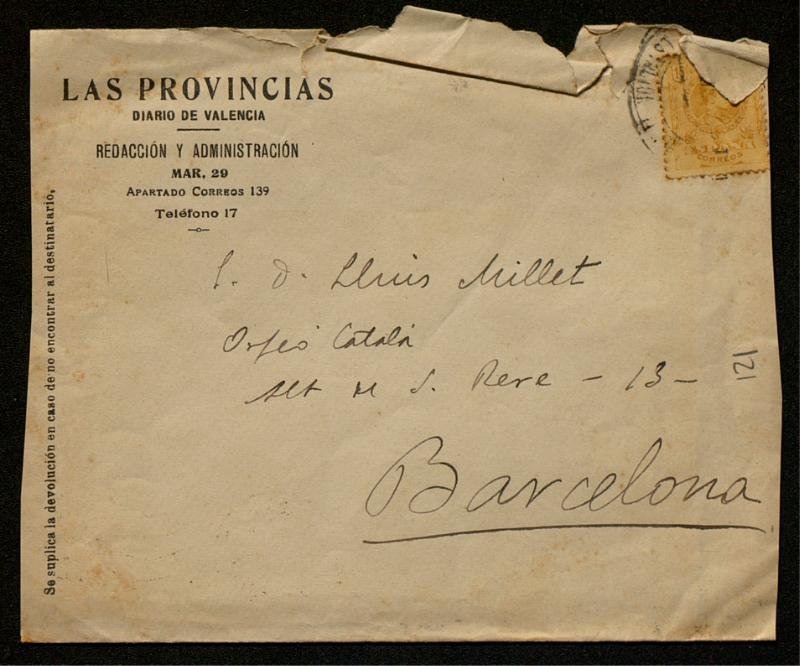 LAS PROVINCIAS
DIARIO DE VALENCIA
REDACCIÓN Y ADMINISTRACIÓN
MAR, 29
APARTADO CORREOS 139
Teléfono 17
Se suplica la devolución en caso de no encontrar al destinatario,
S. D. Lluis Millet
Orfeó Catalá
Alt de S. Pere - 13 -
Barcelona
121
CORREOS